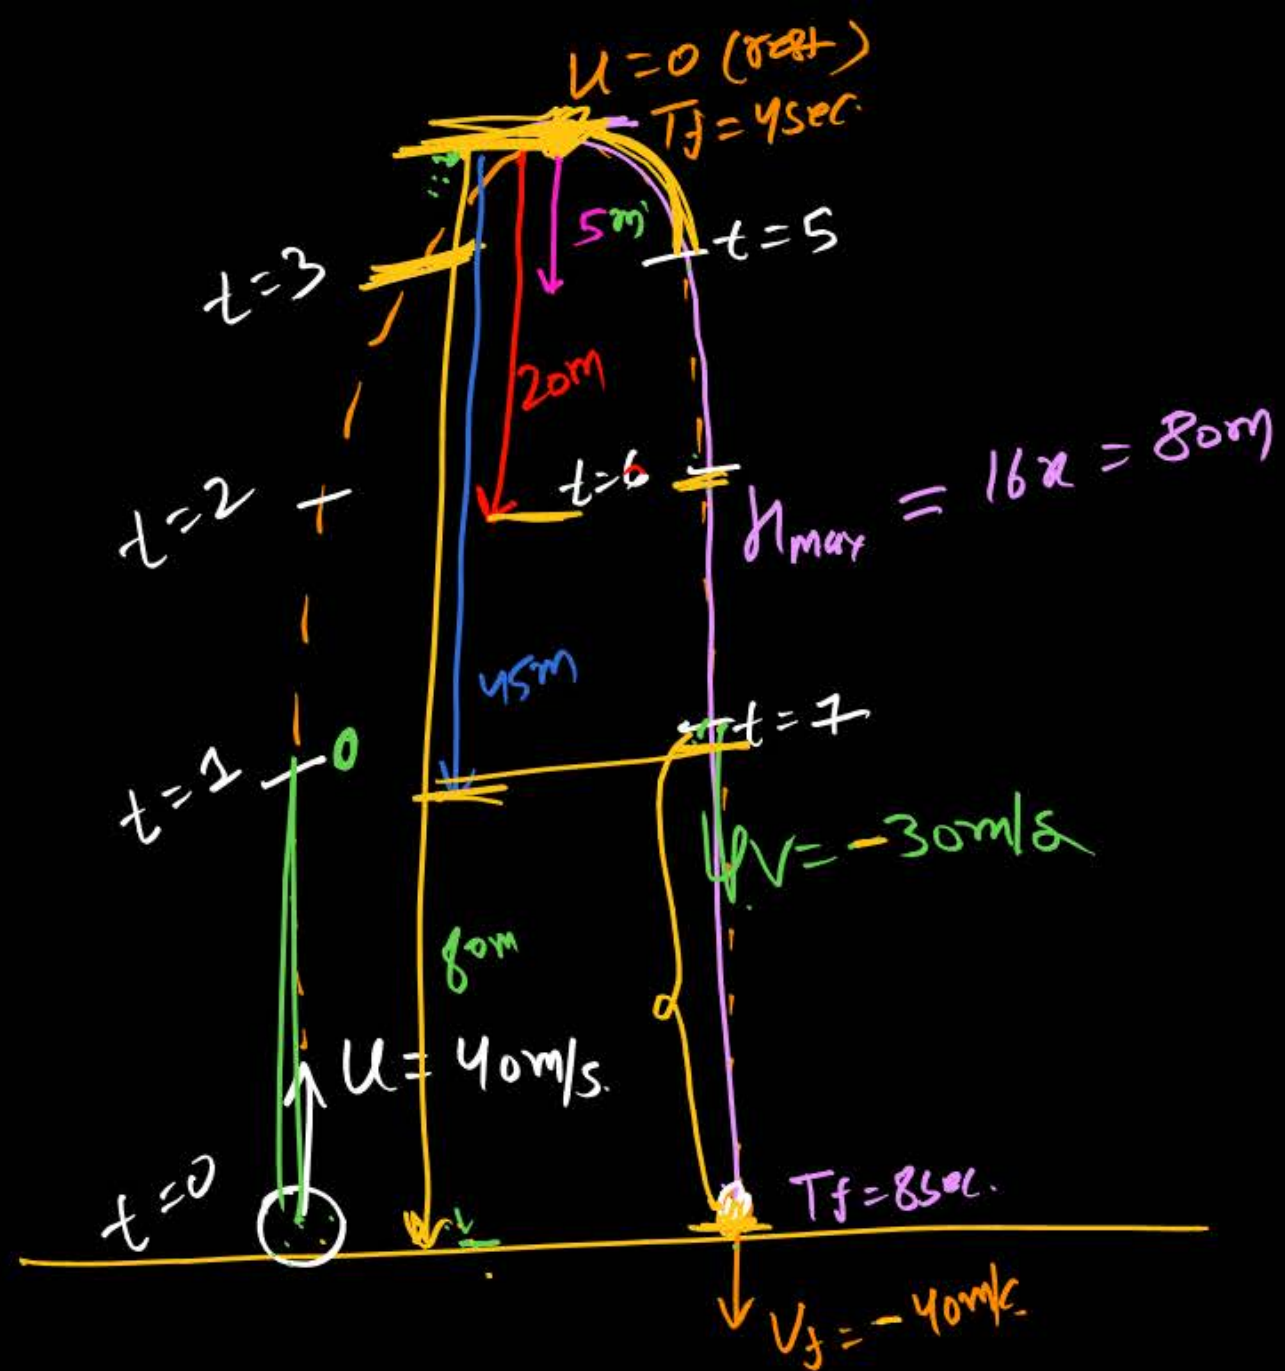 u = 0 (rest)
Tf = 4sec.
5m
t = 5
t = 3
20m
t = 6
Hmax = 16x = 80m
t = 2
45m
t = 7
t = 1
0
V = -30m/s
80m
u = 40m/s.
t = 0
Tf = 8sec.
Vf = -40m/s